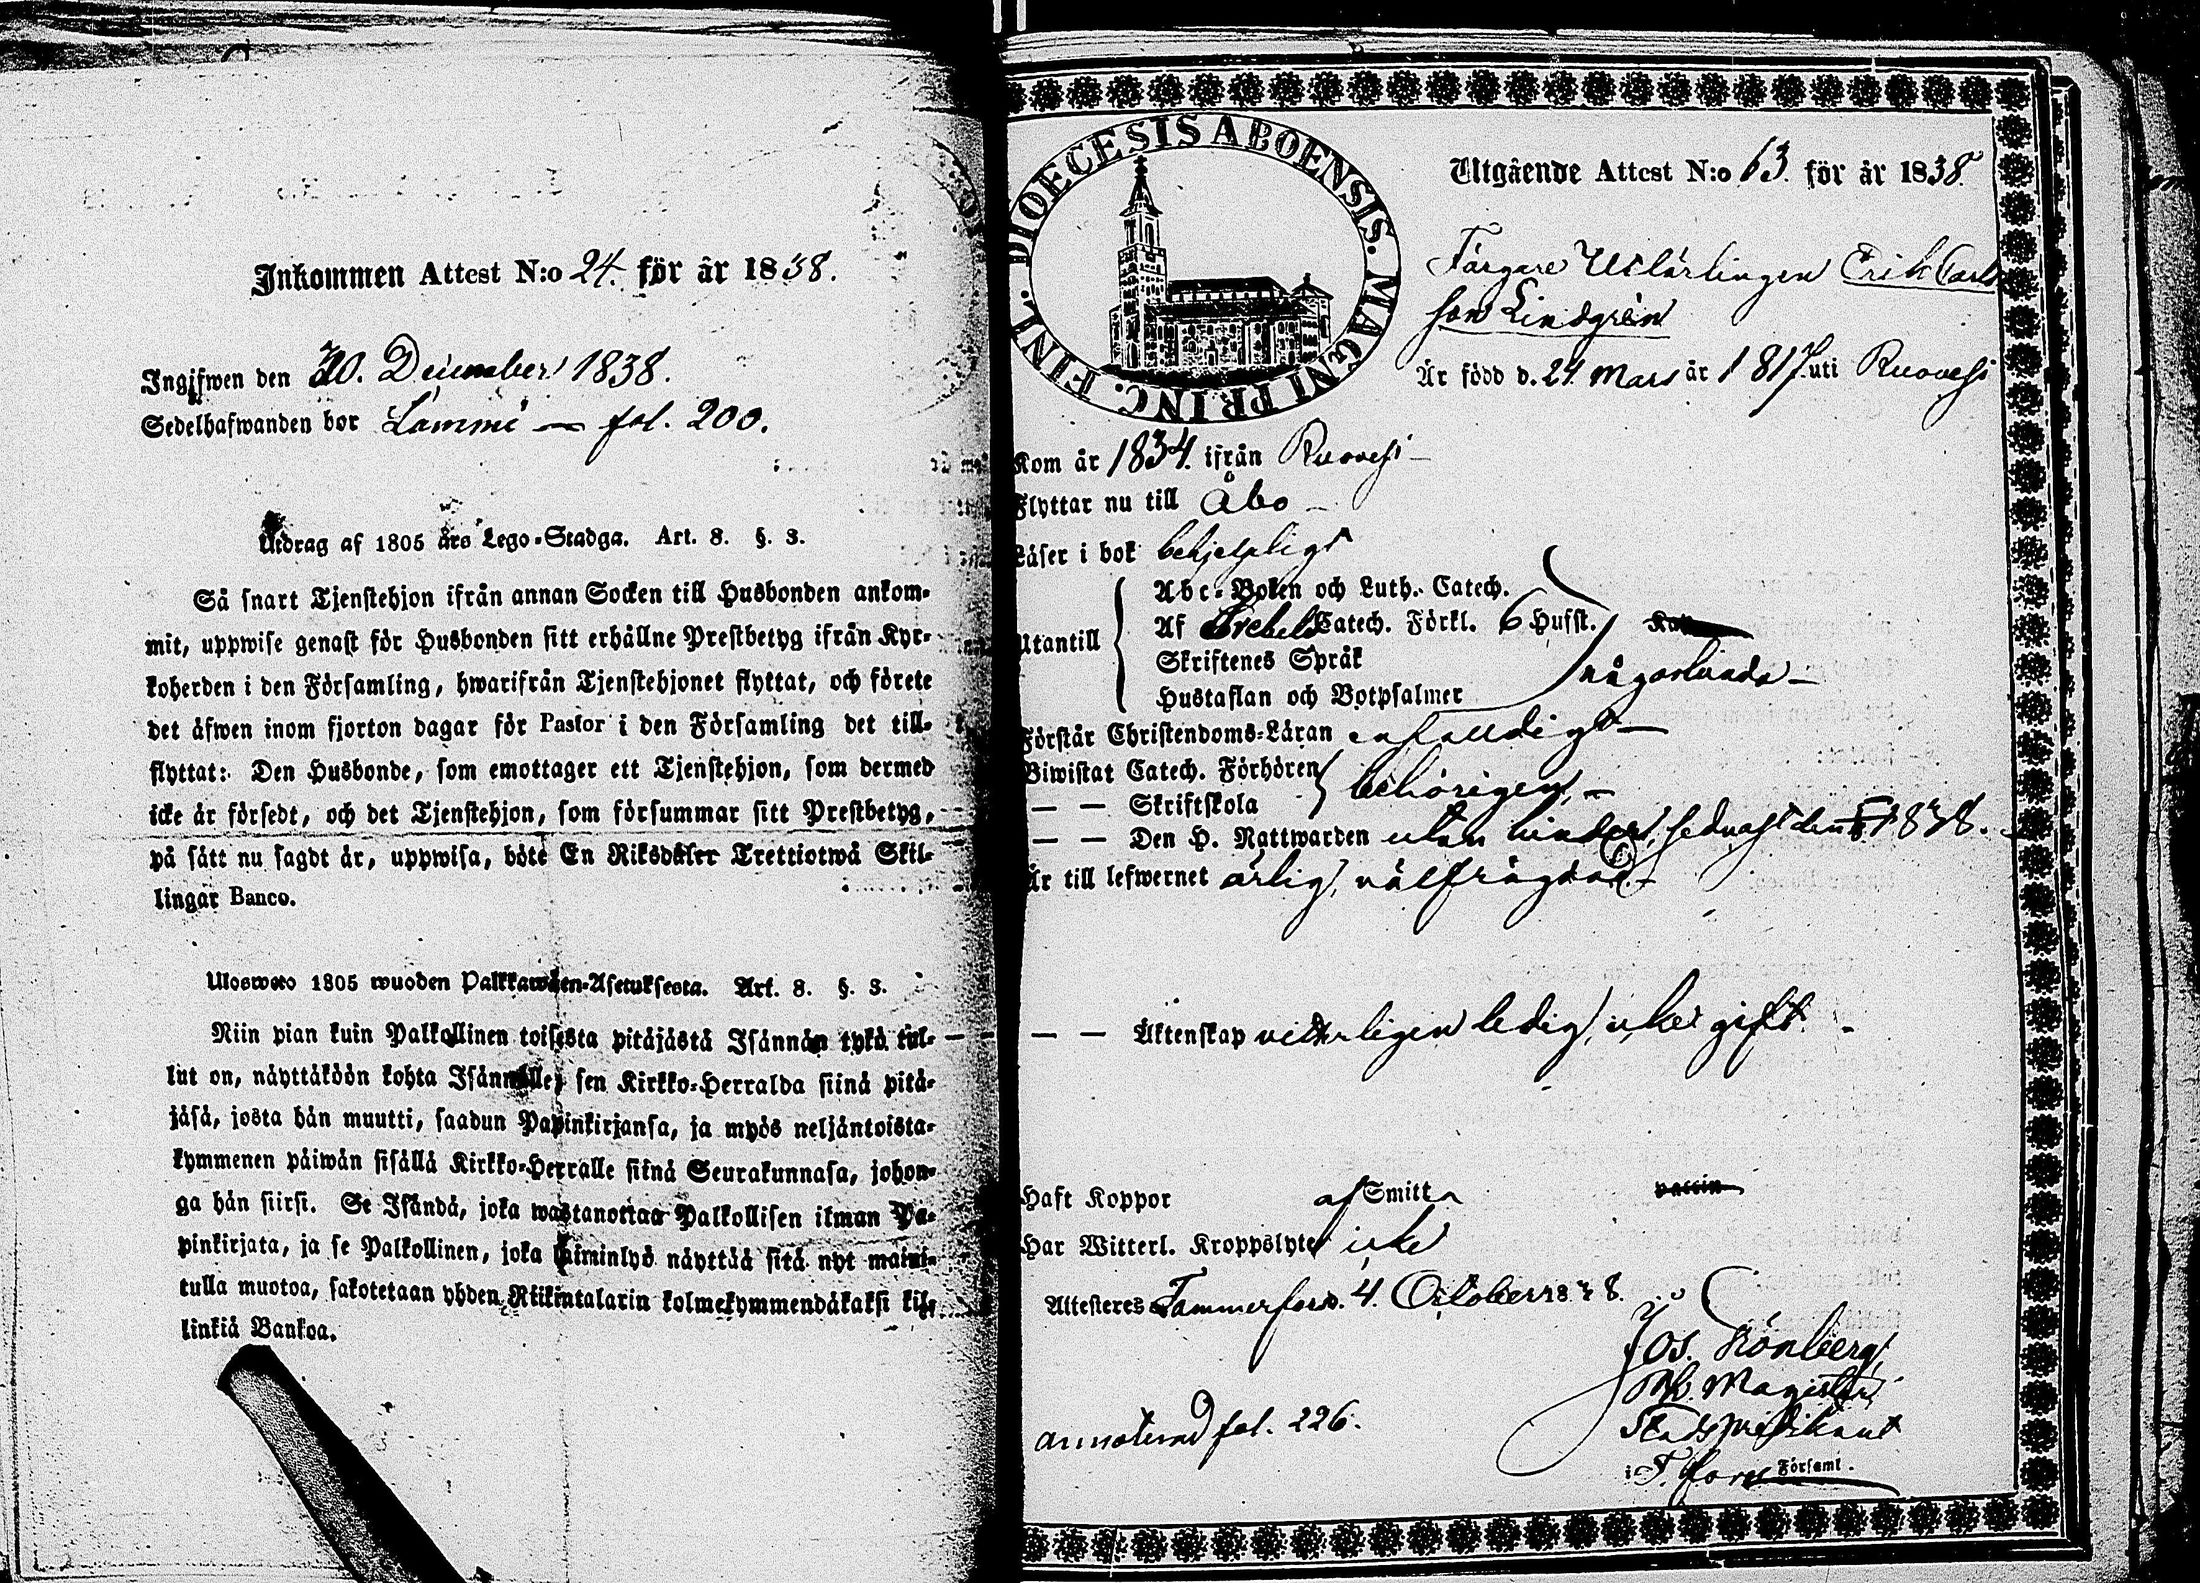 Inkommen Attest N:o 24. för år 1838.
Ingifwen den 30. December 1838.
Sedelhafwanden bor Lammi — fol. 200.
Utdrag af 1805 års Lego-Stadga. Art. 8. §. 3.
Så snart Tjenstehjon ifrån annan Socken till Husbonden ankom-
mit, uppwise genast för Husbonden sitt erhållne Prestbetyg ifrån Kyr-
koherden i den Församling, hwarifrån Tjenstehjonet flyttat, och förete
det äfwen inom fjorton dagar för Pastor i den Församling det till-
flyttat: Den Husbonde, som emottager ett Tjenstehjon, som dermed
icke är försedt, och det Tjenstehjon, som försummar sitt Prestbetyg,
på sätt nu sagdt är, uppwisa, böte En Riksdaler Trettiotwå Skil-
lingar Banco.
Ulosweto 1805 wuoden Palkkawäen-Asetuksesta. Art. 8. §. 3.
Niin pian kuin Palkollinen toisesta pitäjästä Isännän tykö tul-
lut on, näyttäköön kohta Isännälle, sen Kirkko-Herralda siinä pitä-
jäsä, josta hän muutti, saadun Papinkirjansa, ja myös neljäntoista-
kymmenen päiwän sisällä Kirkko-Herralle siinä Seurakunnasa, johon-
ga hän siirsi. Se Isändä, joka wastanottaa Palkollisen ilman Pa-
pinkirjata, ja se Palkollinen, joka laiminlyö näyttää sitä nyt maini-
tulla muotoa, sakotetaan yhden Riikintalarin kolmekymmendäkaksi kil-
linkiä Bankoa.
FINL. DIOECESIS ABOENSIS. MAGNI PRINC.
Utgående Attest N:o 63. för år 1838.
Färgare Utlärlingen Erik Carls
son Lindgrén
Är född d. 24 Mars år 1817 uti Ruovesi
Kom år 1834. ifrån Ruovesi —
Flyttar nu till Åbo —
Läser i bok behjelpligt
Utantill
Abc-Boken och Luth. Catech.
Af Svebel. Catech. Förkl. 6 Hufst.
Skriftenes Språk
Hustaflan och Botpsalmer
någorlunda —
Förstår Christendoms-Läran enfaldigt —
Biwistat Catech. Förhören
— — Skriftskola
behörigen, —
— — Den H. Nattwarden utan hinder, sednast den 1838.
Är till lefwernet ärlig, välfrägdad. —
— — Äktenskap veterligen ledig, icke gift. —
Haft Koppor af Smitta vaccin
Har Witterl. Kroppslyte icke
Attesteres Tammerfors d. 4. October 1838.
Jos. Grönberg,
Ph. Magister
Stadspredikant
i T.fors Församl.
annoterad fol. 226.